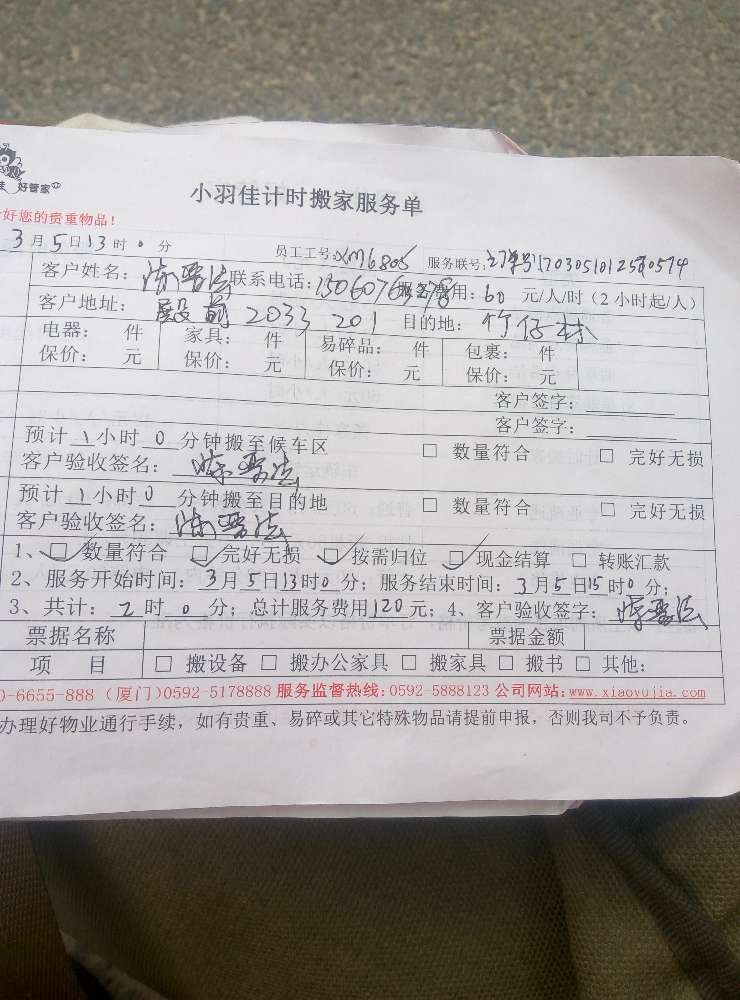 好管家
小羽佳计时搬家服务单
好您的贵重物品!
3月5日13时0分 员工工号:XM6805 服务联号:订单号17030510125
客户姓名: 联系电话: 费用:60元/人/时(2小时起/人)
客户地址:殿前2033 201 目的地:竹仔林
电器: 件 家具: 件 易碎品: 件 包裹: 件
保价: 元 保价: 元 保价: 元 保价: 元
客户签字:
客户签字:
预计1小时0分钟搬至候车区 □ 数量符合 □ 完好无损
客户验收签名:
预计1小时0分钟搬至目的地 □ 数量符合 □ 完好无损
客户验收签名:
1、☑数量符合 ☑完好无损 ☑按需归位 ☑现金结算 □ 转账汇款
2、服务开始时间:3月5日13时0分;服务结束时间:3月5日15时0分;
3、共计:2时0分;总计服务费用120元;4、客户验收签字:
票据名称 票据金额
项 目 □ 搬设备 □ 搬办公家具 □ 搬家具 □ 搬书 □ 其他:
0-6655-888(厦门)0592-5178888 服务监督热线:0592-5888123 公司网站:www.xiaoyujia.com
办理好物业通行手续,如有贵重、易碎或其它特殊物品请提前申报,否则我司不予负责。